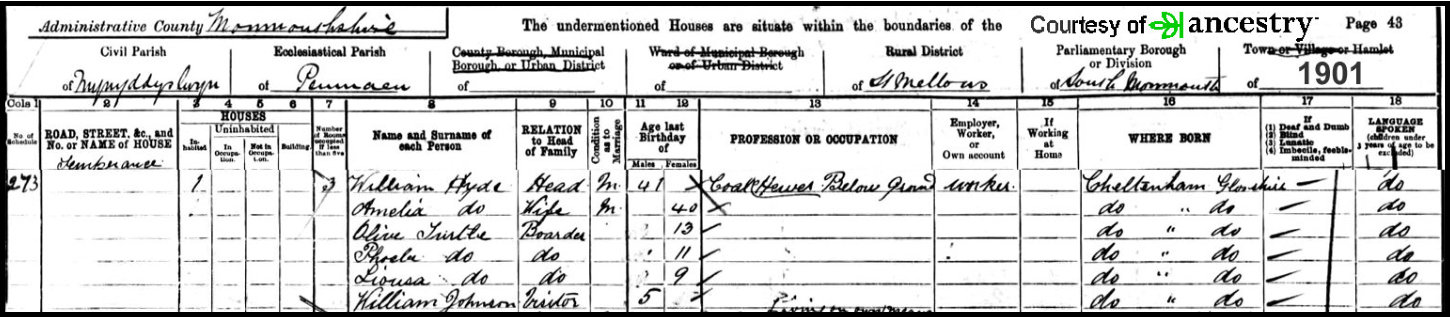 Administrative County Monmouthshire The undermentioned Houses are situate within the boundaries of the Courtesy of ancestry Page 43
Civil Parish Ecclesiastical Parish County Borough, Municipal Borough, or Urban District Ward of Municipal Borough or of Urban District Rural District Parliamentary Borough or Division Town or Village or Hamlet
of Mynyddyslwyn of Penmaen of of of St Mellons of South Monmouth of 1901
Cols 1 2 3 4 5 6 7 8 9 10 11 12 13 14 15 16 17 18
No. of Schedule ROAD, STREET, &c., and No. or NAME of HOUSE HOUSES Inhabited Uninhabited In Occupation. Not in Occupation. Building. Number of Rooms occupied if less than five Name and Surname of each Person RELATION to Head of Family Condition as to Marriage Age last Birthday of Males Females PROFESSION OR OCCUPATION Employer, Worker, or Own account If Working at Home WHERE BORN If (1) Deaf and Dumb (2) Blind (3) Lunatic (4) Imbecile, feeble-minded LANGUAGE SPOKEN (children under 3 years of age to be excluded)
Temperance
273 1 3 William Hyde Head M 41 Coal Hewer Below Ground worker Cheltenham Glosshire — do
Amelia do Wife M 40 do " do — do
Olive Turtle Boarder 13 do " do — do
Phoebe do do 11 do " do — do
Liousa do do 9 do " do — do
William Johnson Visitor 5 do " do — do
Living on own means